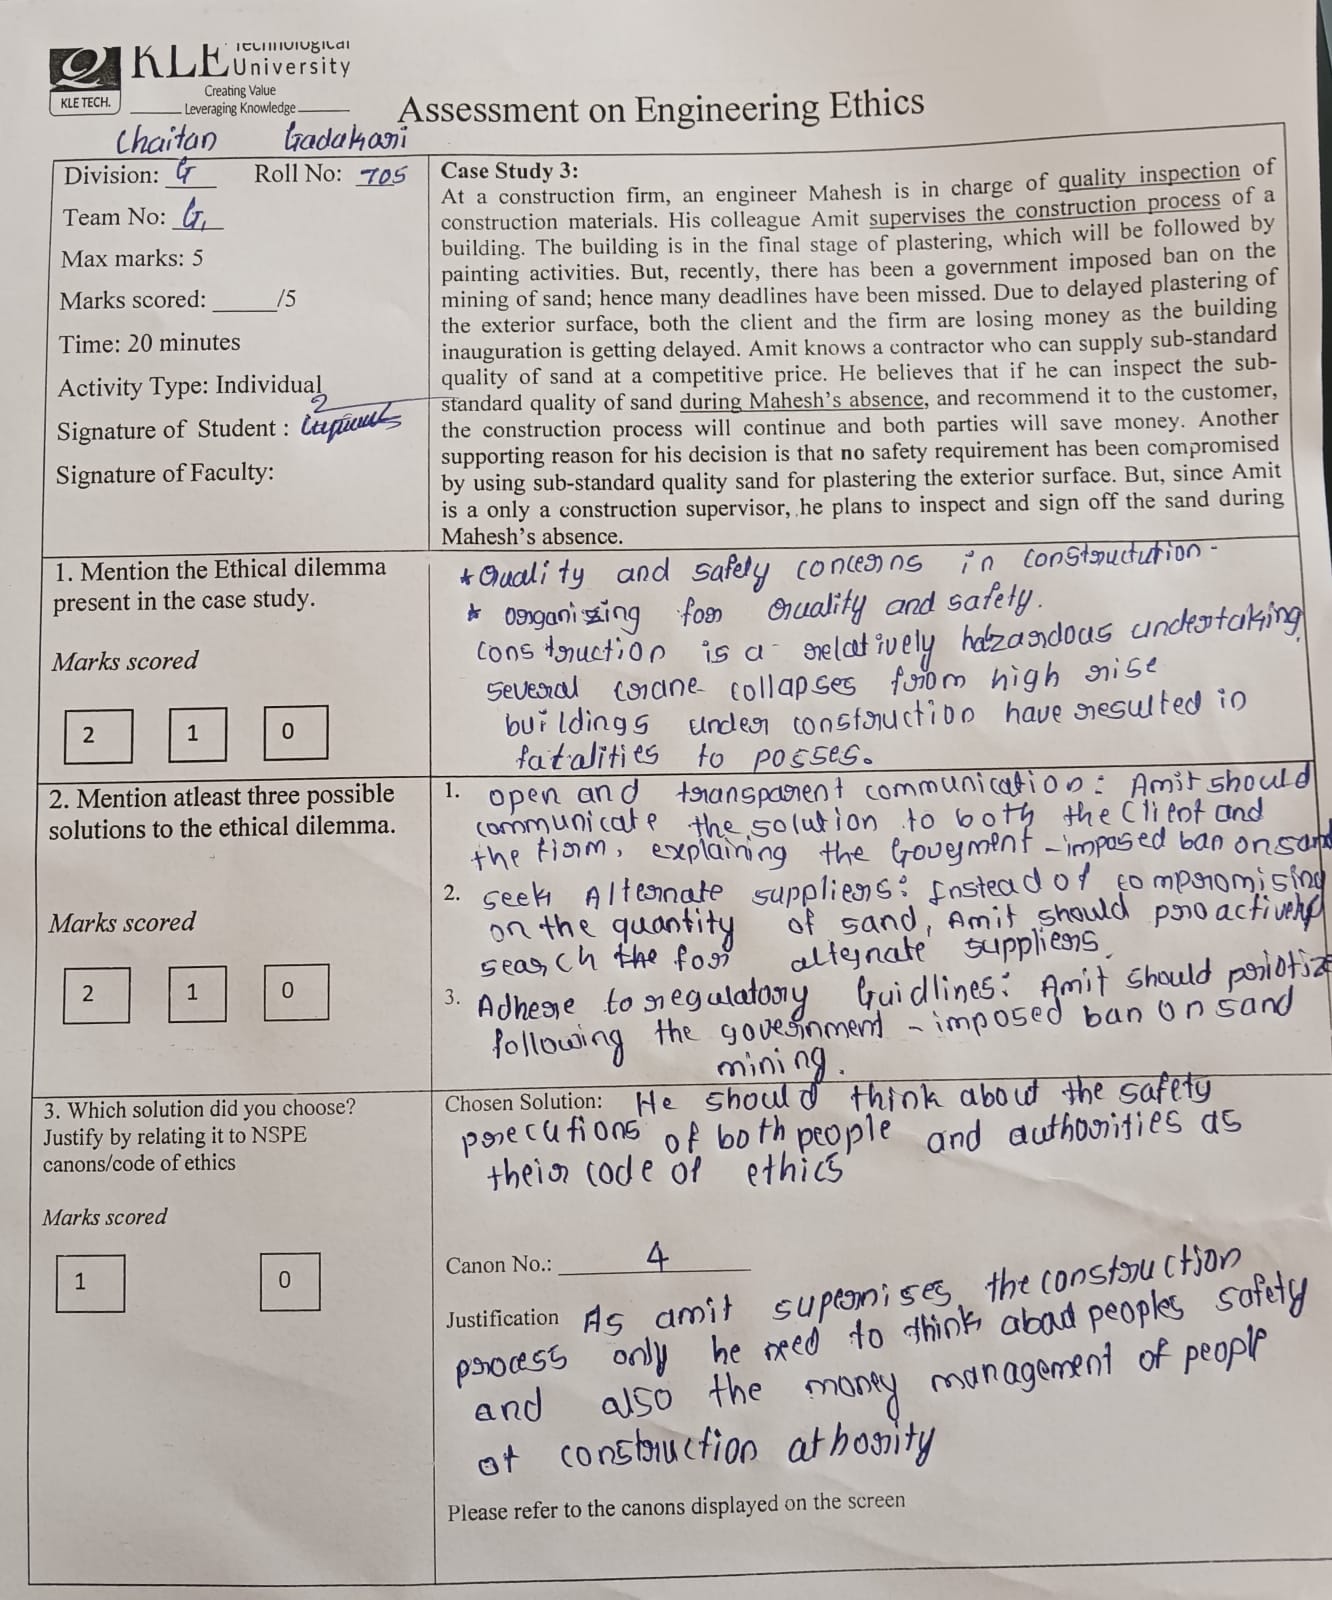 KLE Technological
University
Creating Value
Leveraging Knowledge
KLE TECH.
Assessment on Engineering Ethics
Chaitan Gadakari
Division: G Roll No: 705
Team No: G1
Max marks: 5
Marks scored: ______/5
Time: 20 minutes
Activity Type: Individual
Signature of Student :
Signature of Faculty:
Case Study 3:
At a construction firm, an engineer Mahesh is in charge of quality inspection of
construction materials. His colleague Amit supervises the construction process of a
building. The building is in the final stage of plastering, which will be followed by
painting activities. But, recently, there has been a government imposed ban on the
mining of sand; hence many deadlines have been missed. Due to delayed plastering of
the exterior surface, both the client and the firm are losing money as the building
inauguration is getting delayed. Amit knows a contractor who can supply sub-standard
quality of sand at a competitive price. He believes that if he can inspect the sub-
standard quality of sand during Mahesh's absence, and recommend it to the customer,
the construction process will continue and both parties will save money. Another
supporting reason for his decision is that no safety requirement has been compromised
by using sub-standard quality sand for plastering the exterior surface. But, since Amit
is a only a construction supervisor, he plans to inspect and sign off the sand during
Mahesh's absence.
1. Mention the Ethical dilemma
present in the case study.
Marks scored
2 1 0
* Quality and safety concerns in constructution -
* organizing for Quality and safety.
construction is a relatively hazardous undertaking,
several crane collapses from high rise
buildings under construction have resulted in
fatalities to posses.
2. Mention atleast three possible
solutions to the ethical dilemma.
Marks scored
2 1 0
1. open and transparent communication: Amit should
communicate the solution to both the client and
the firm, explaining the Goverment -imposed ban on sand
2. seek Alternate suppliers: Instead of compromising
on the quantity of sand, Amit should proactively
search the for alternate suppliers.
3. Adhere to regulatory Guidlines: Amit should priotize
following the government - imposed ban on sand
mining.
3. Which solution did you choose?
Justify by relating it to NSPE
canons/code of ethics
Marks scored
1 0
Chosen Solution: He should think about the safety
precutions of both people and authorities as
their code of ethics
Canon No.: 4
Justification As amit supervises the construction
process only he need to think about peoples safety
and also the money management of people
of construction athority
Please refer to the canons displayed on the screen